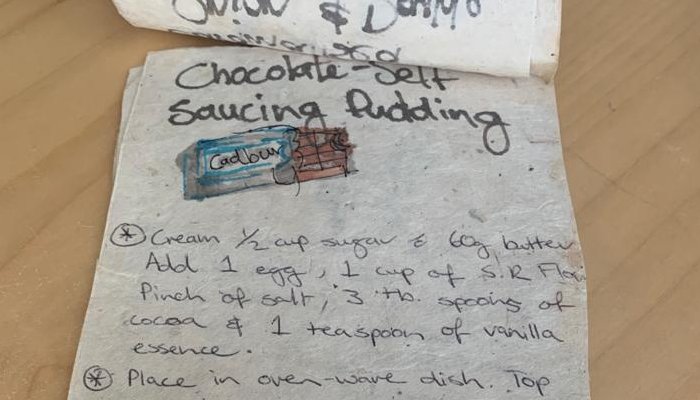 &
Chocolate-Self
Saucing Pudding
Cadbury
* Cream 1/2 cup sugar & 60g butter
Add 1 egg, 1 cup of S.R Flou
Pinch of salt, 3 tb. spoons of
cocoa & 1 teaspoon of vanilla
essence.
* Place in oven-wave dish. Top